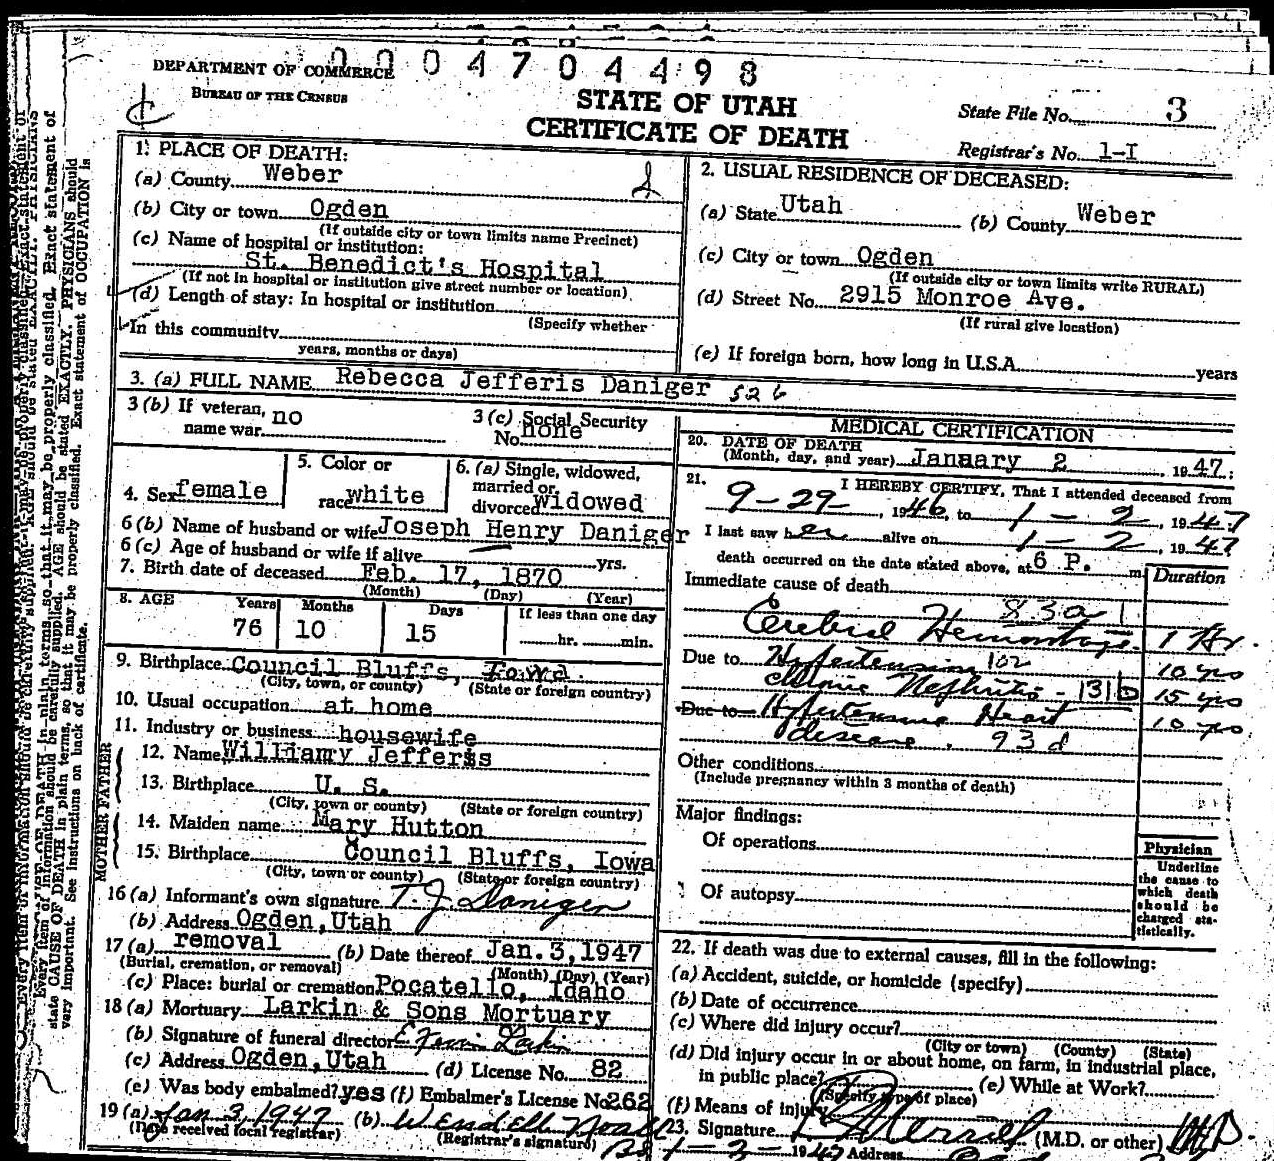 0004704498
DEPARTMENT OF COMMERCE
BUREAU OF THE CENSUS
STATE OF UTAH
CERTIFICATE OF DEATH
State File No. 3
Registrar's No. 1-I
1. PLACE OF DEATH:
(a) County Weber
(b) City or town Ogden
(If outside city or town limits name Precinct)
(c) Name of hospital or institution:
St. Benedict's Hospital
(If not in hospital or institution give street number or location)
(d) Length of stay: In hospital or institution
(Specify whether
In this community
years, months or days)
2. USUAL RESIDENCE OF DECEASED:
(a) State Utah (b) County Weber
(c) City or town Ogden
(If outside city or town limits write RURAL)
(d) Street No. 2915 Monroe Ave.
(If rural give location)
(e) If foreign born, how long in U.S.A. years
3. (a) FULL NAME Rebecca Jefferis Daniger 526
3 (b) If veteran, no
name war
3 (c) Social Security
No. none
4. Sex female
5. Color or
race white
6. (a) Single, widowed,
married or,
divorced widowed
6 (b) Name of husband or wife Joseph Henry Daniger
6 (c) Age of husband or wife if alive — yrs.
7. Birth date of deceased Feb. 17, 1870
(Month) (Day) (Year)
8. AGE Years Months Days If less than one day
76 10 15 hr. min.
9. Birthplace Council Bluffs, Iowa.
(City, town, or county) (State or foreign country)
10. Usual occupation at home
11. Industry or business housewife
FATHER
12. Name William Jefferis
13. Birthplace U. S.
(City, town or county) (State or foreign country)
MOTHER
14. Maiden name Mary Hutton
15. Birthplace Council Bluffs, Iowa
(City, town or county) (State or foreign country)
16 (a) Informant's own signature T. J. Daniger
(b) Address Ogden, Utah
17 (a) removal (b) Date thereof Jan. 3, 1947
(Burial, cremation, or removal) (Month) (Day) (Year)
(c) Place: burial or cremation Pocatello, Idaho
18 (a) Mortuary Larkin & Sons Mortuary
(b) Signature of funeral director Larkin
(c) Address Ogden, Utah (d) License No. 82
(e) Was body embalmed? yes (f) Embalmer's License No 262
19 (a) Jan 3, 1947 (b) Wendell Noall
(Date received local registrar) (Registrar's signature)
MEDICAL CERTIFICATION
20. DATE OF DEATH
(Month, day, and year) January 2, 1947:
21. I HEREBY CERTIFY, That I attended deceased from
9-29-, 1946, to 1-2, 1947
I last saw her alive on 1-2, 1947
death occurred on the date stated above, at 6 P. m
Immediate cause of death Duration
83a 1
Cerebral Hemorrhage 1 Hr.
Due to Hypertension 102 10 yrs
chronic Nephritis - 131b 15 yrs
Due to Hypertensive Heart 10 yrs
disease. 93d
Other conditions
(Include pregnancy within 3 months of death)
Major findings:
Of operations
Of autopsy
Physician
Underline
the cause to
which death
should be
charged sta-
tistically.
22. If death was due to external causes, fill in the following:
(a) Accident, suicide, or homicide (specify)
(b) Date of occurrence
(c) Where did injury occur?
(City or town) (County) (State)
(d) Did injury occur in or about home, on farm, in industrial place,
in public place? (e) While at Work?
(Specify type of place)
(f) Means of injury
23. Signature Merrill (M.D. or other) M.D.
1-3-1947 Address